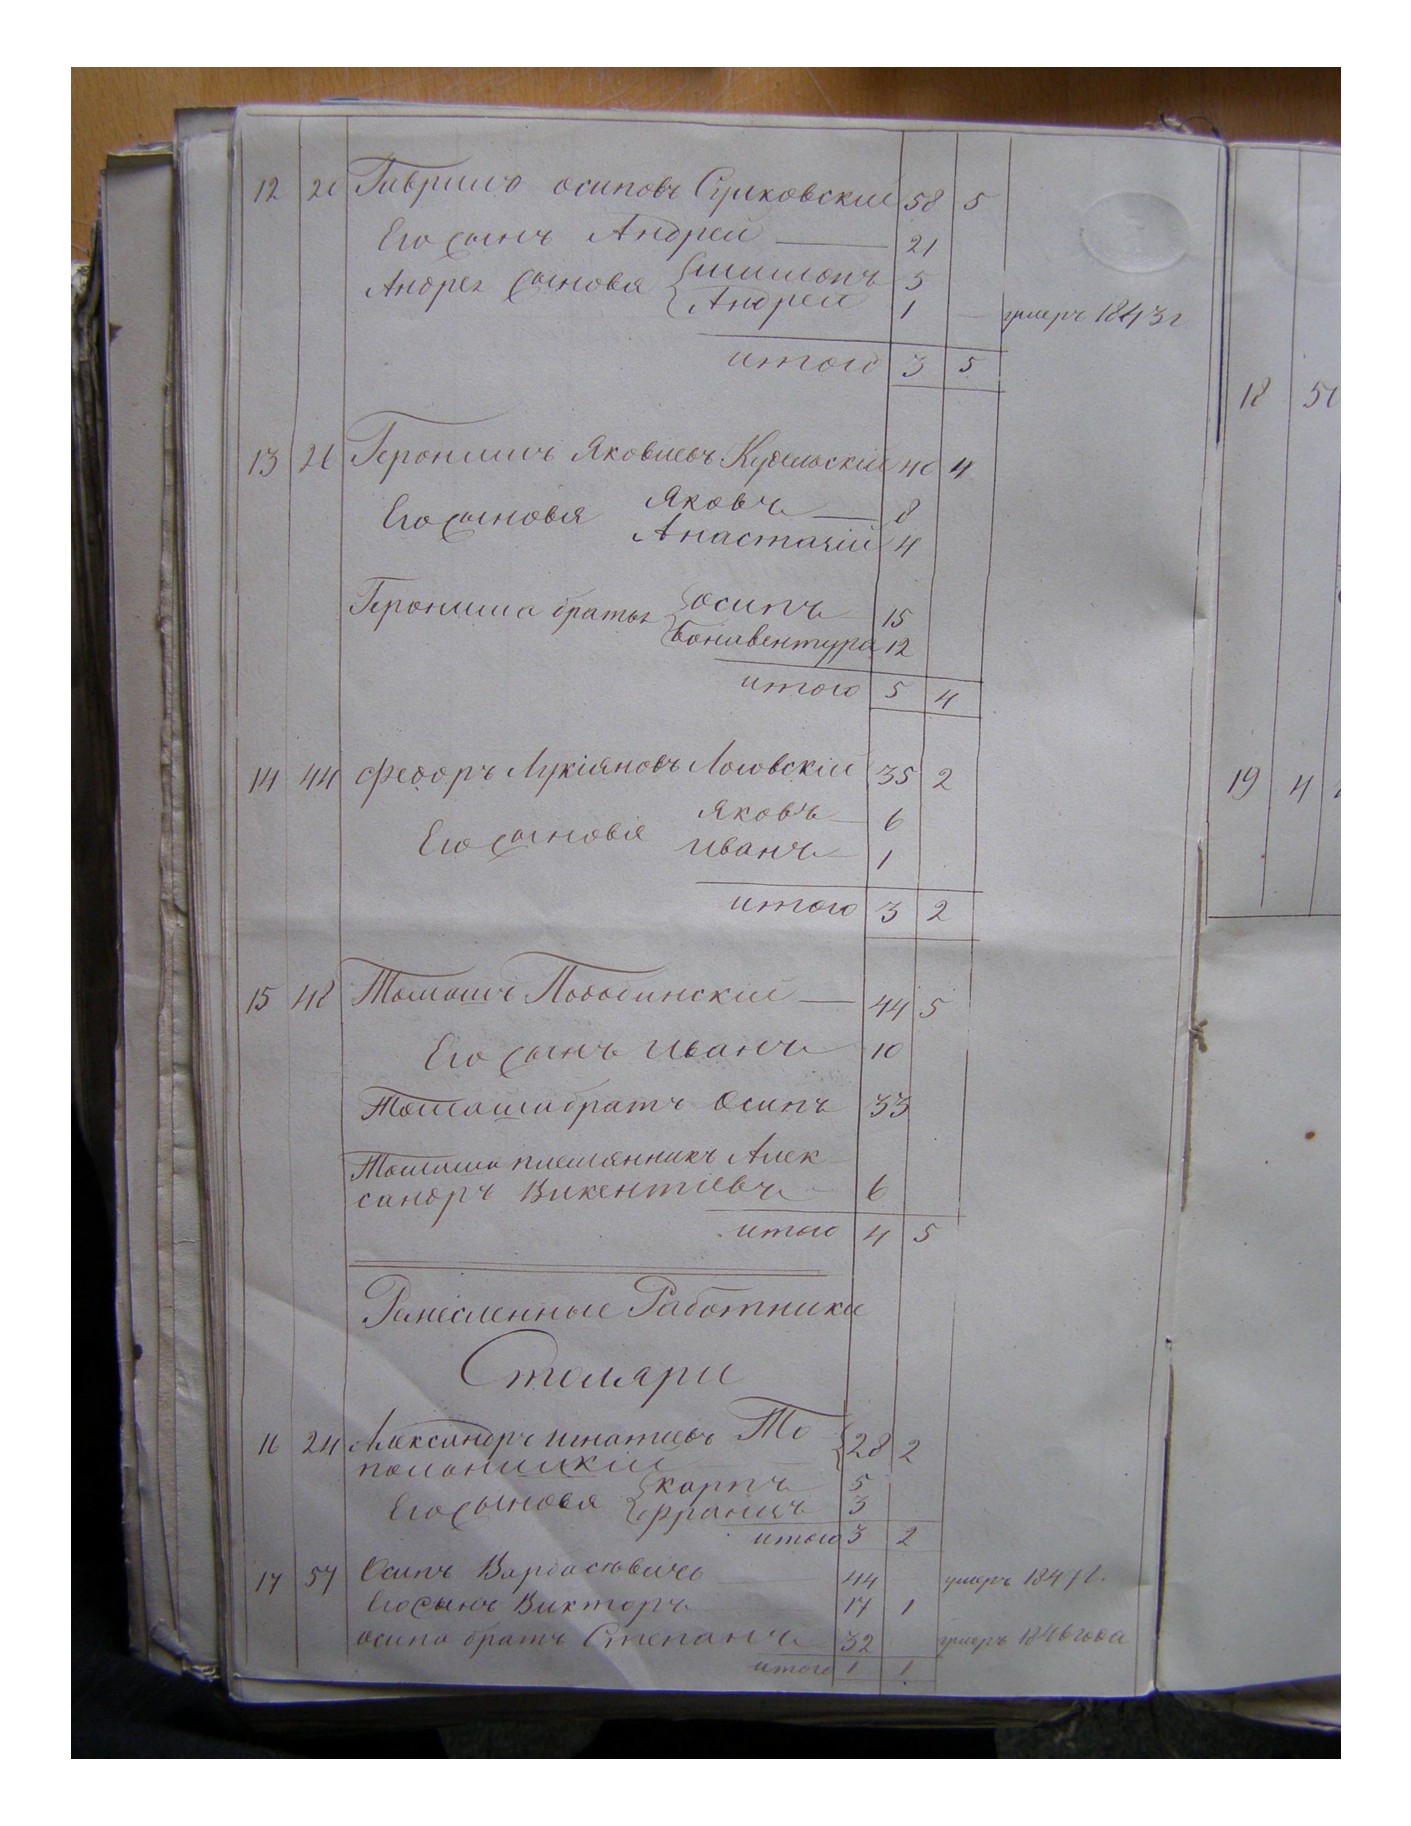 12 26 Гаврило осиповъ Сулковскіи 58 5
Его сынъ Андреи 21
Андрея сыновья шимонъ 5
Андреи 1 умеръ 1843 г
итого 3 5
13 26 Геронимъ Яковлевъ Кудельскіи 40 4
Его сыновья Яковъ 8
Анастачій 4
Геронима братья осипъ 15
бонавентура 12
итого 5 4
14 44 Федоръ Лукіяновъ Лоовскій 35 2
Его сыновья Яковъ 6
Иванъ 1
итого 3 2
15 48 Томашъ Лободинскій 44 5
Его сынъ Иванъ 10
Томаша братъ Осипъ 33
Томаша племянникъ Алек
сандръ Викентіевъ 6
итого 4 5
Ремесленные Работники
Столяри
16 24 Александръ игнатіевъ То 28 2
полоницкій
Его сыновья карпъ 5
францъ 3
итого 3 2
17 57 Осипъ 44 умеръ 1847 г.
Его сынъ Викторъ 17 1
осипа братъ Степанъ 32 умеръ 1846 года
итого 1 1
18
19 4